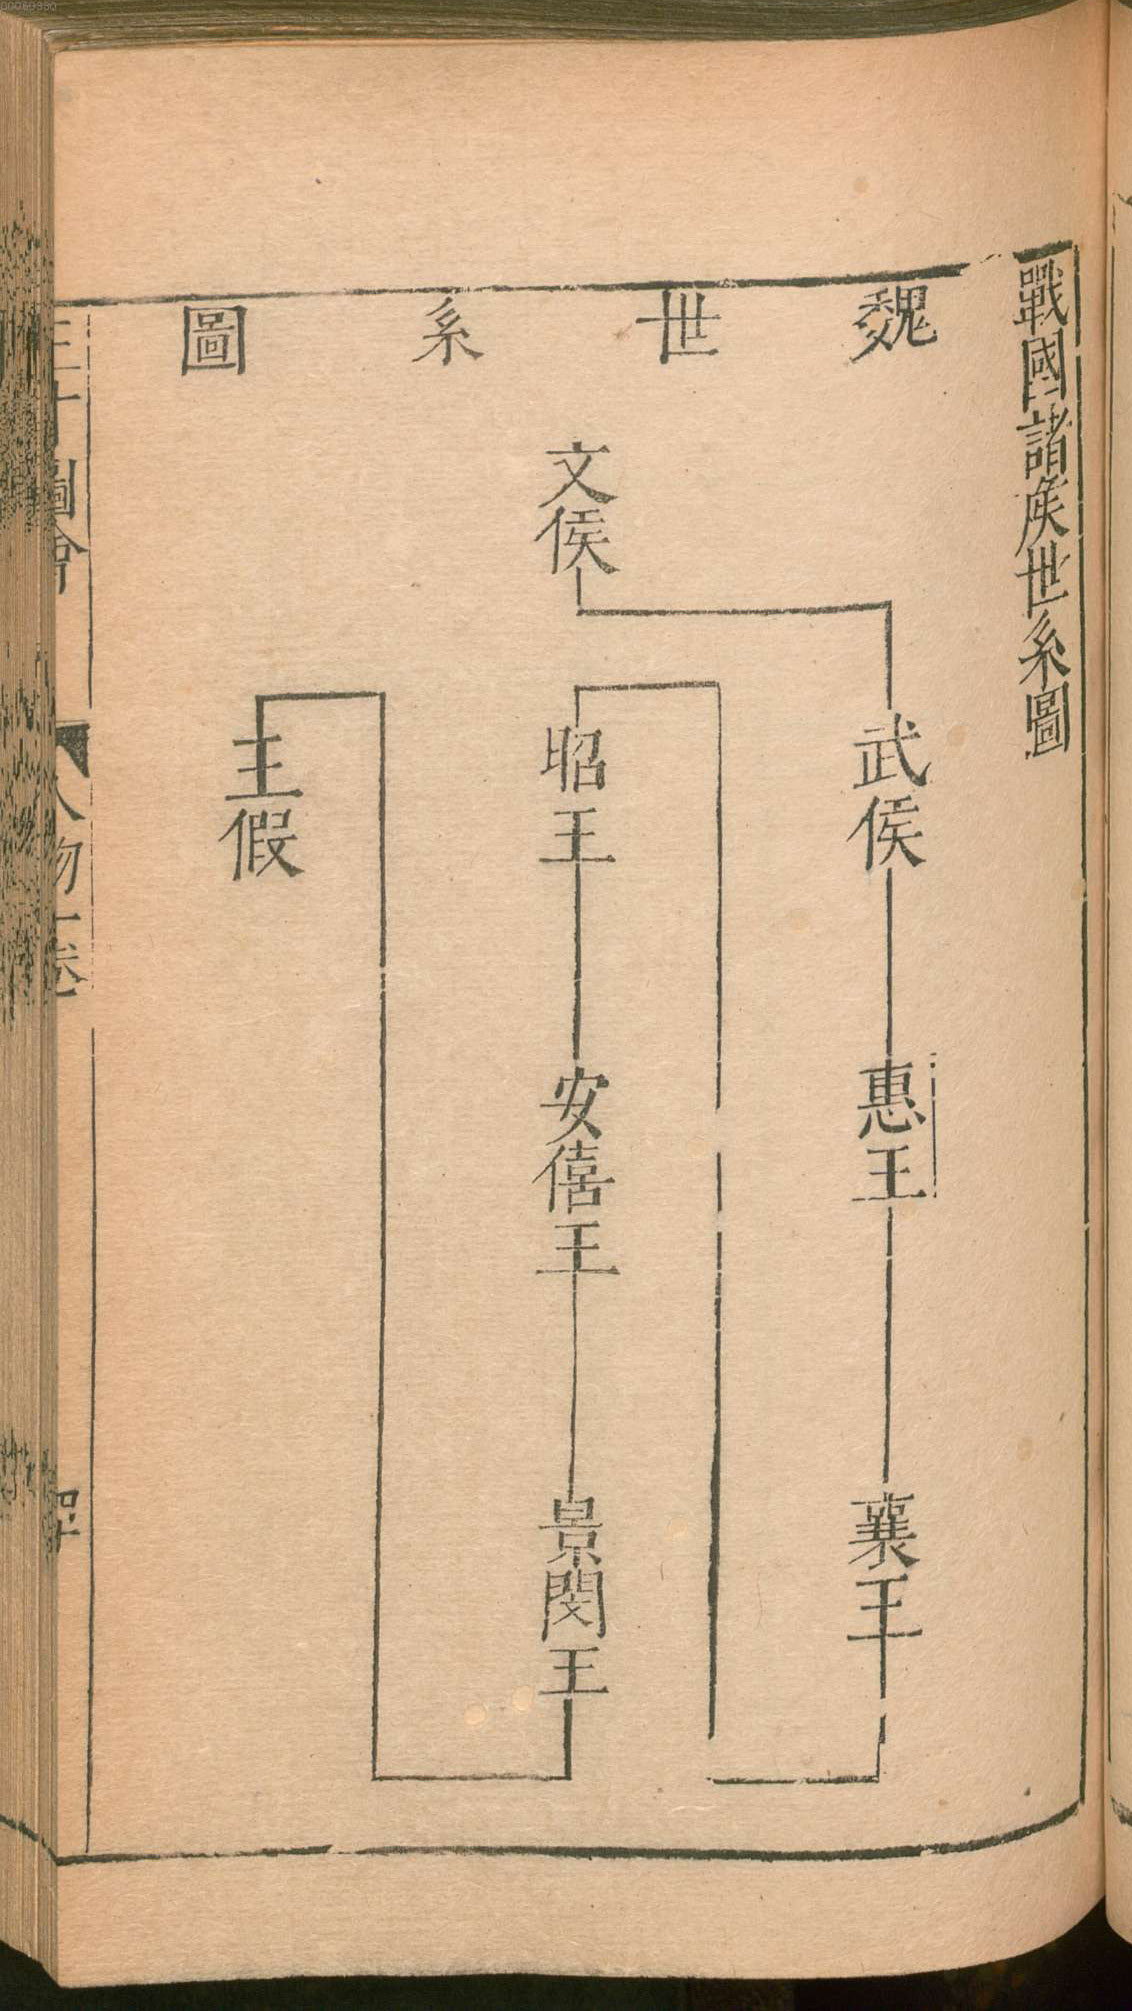 戰國諸侯世系圖
魏世系圖
文侯
武侯
惠王
襄王
昭王
安僖王
景閔王
王假
三才圖會
人物一卷